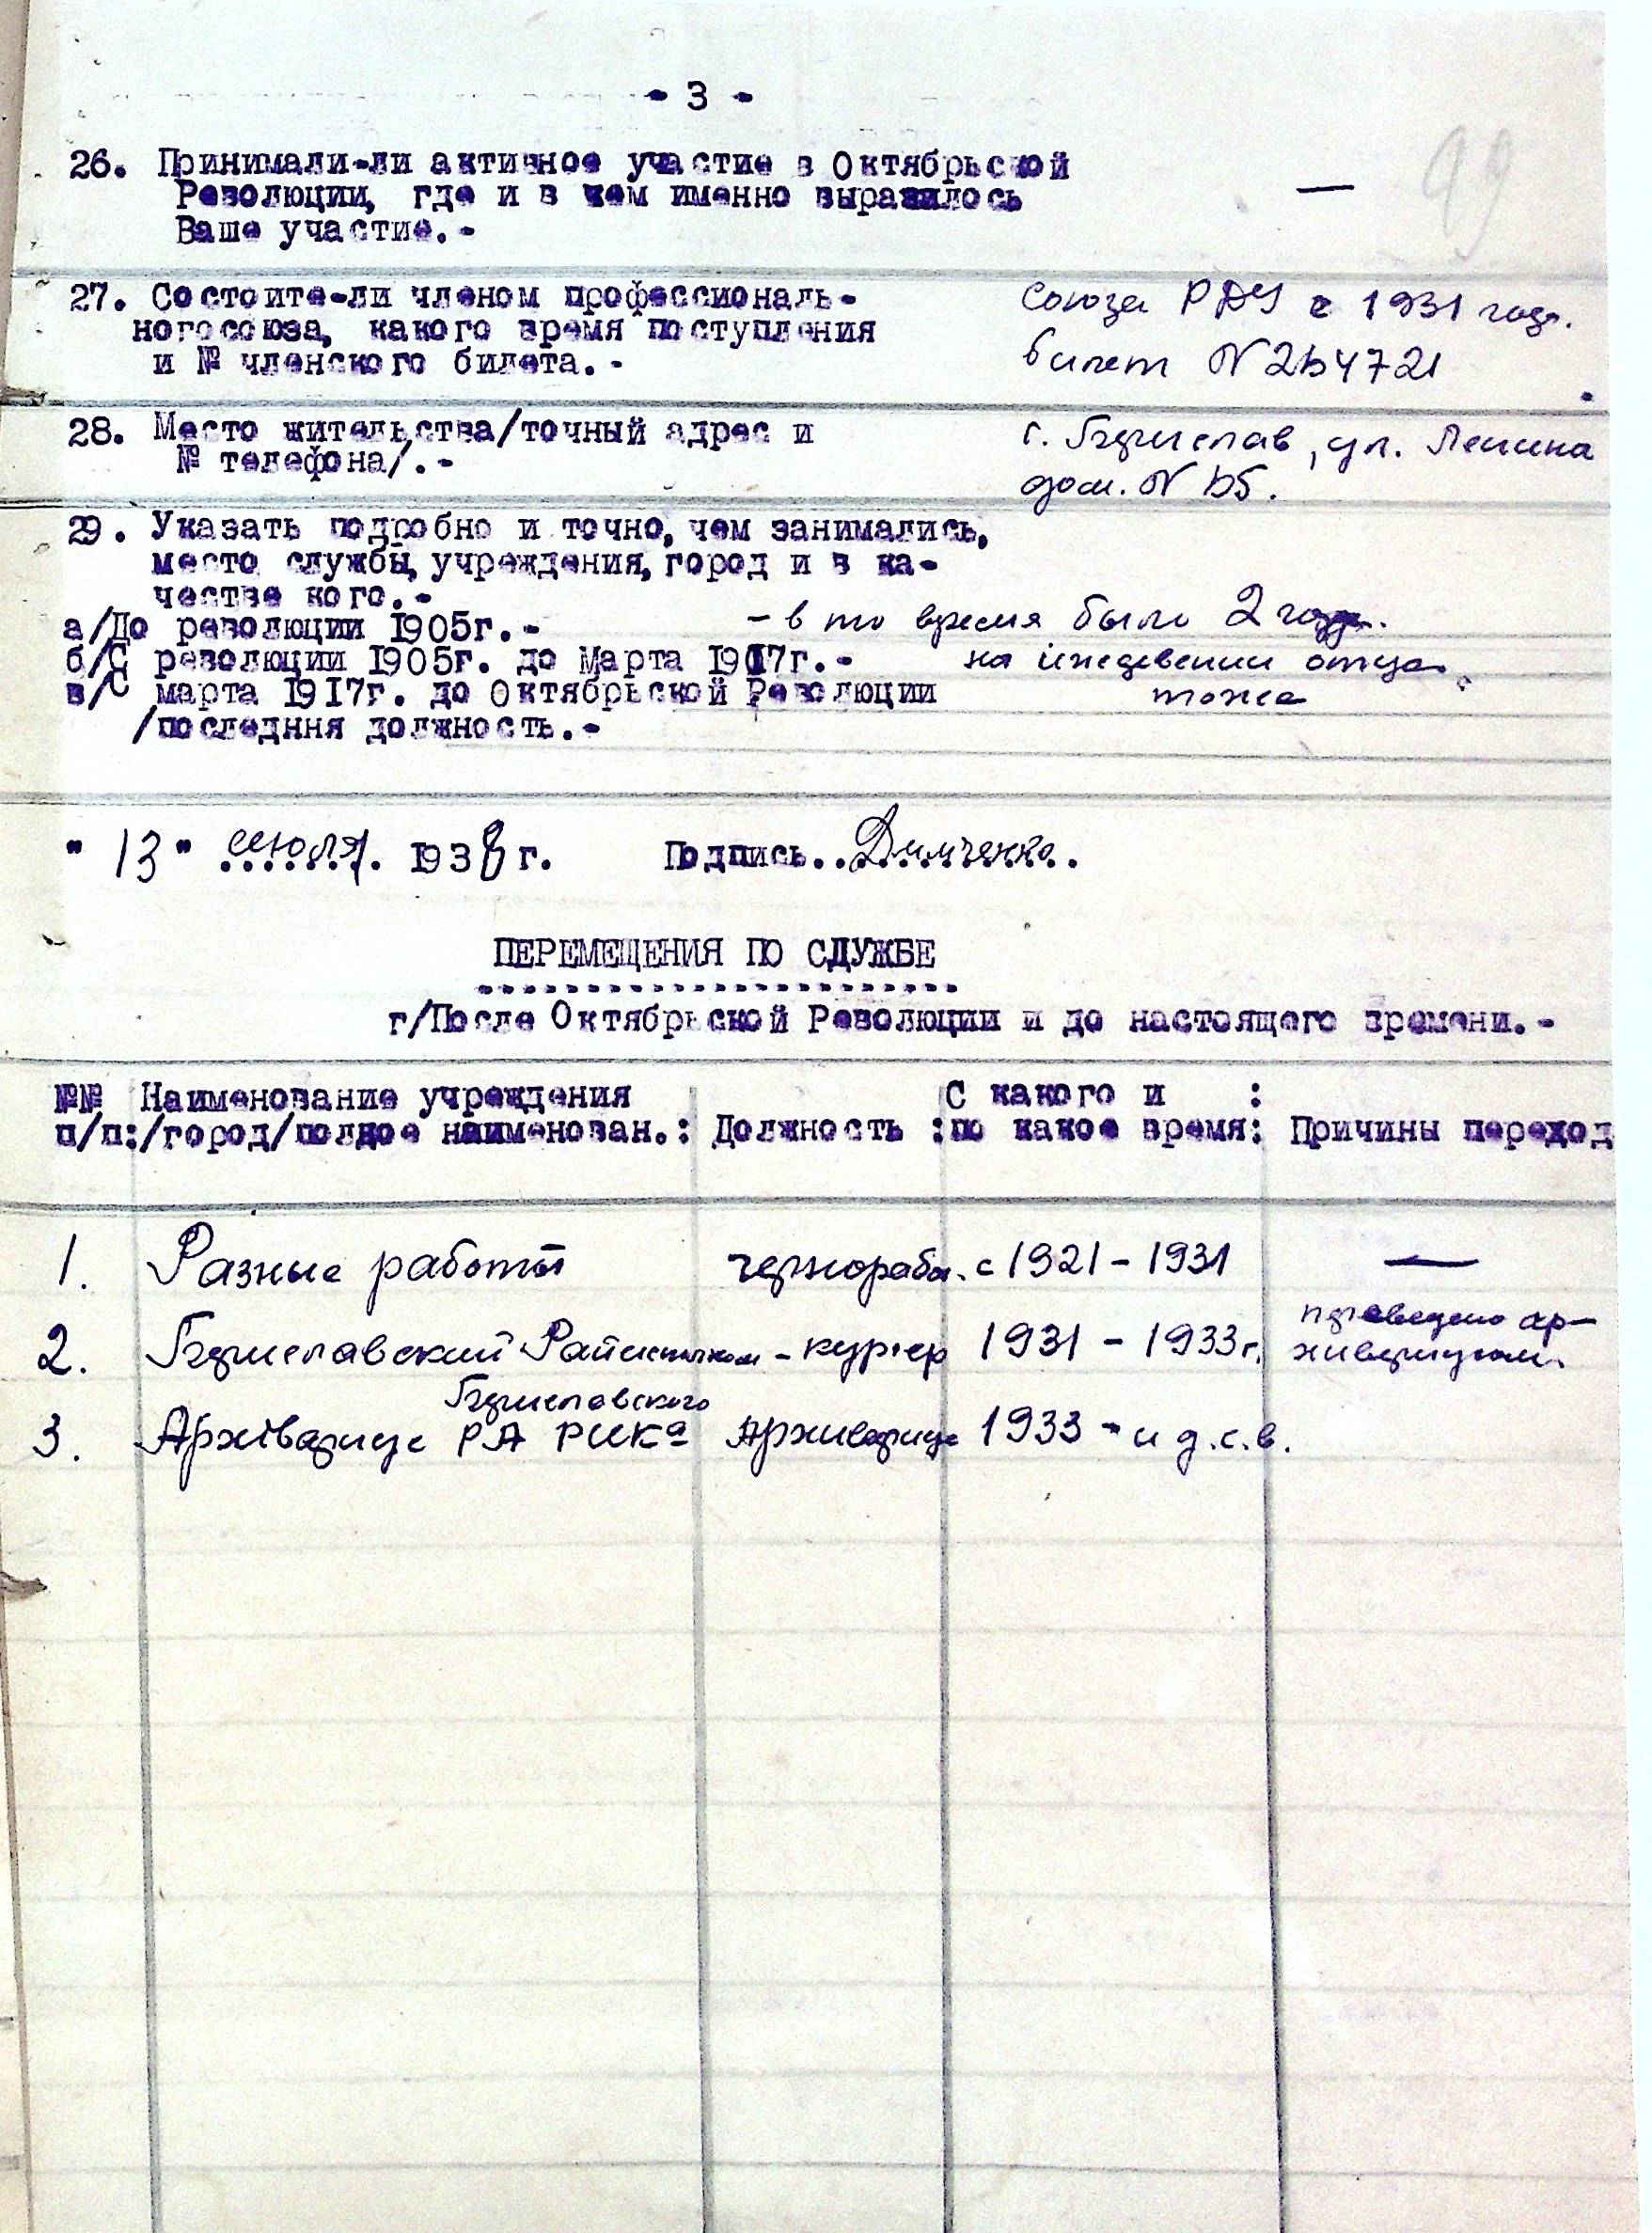 - 3 -
99
26. Принимали-ли активное участие в Октябрьской —
Революции, где и в чем именно выразилось
Ваше участие.-
27. Состоите-ли членом профессиональ- Союза РДУ с 1931 года.
ногосоюза, какого время поступления
и № членского билета.- билет N
28. Место жительства/точный адрес и г. Берислав, ул. Ленина
№ телефона/.- дом. N
29. Указать подробно и точно, чем занимались,
место службы, учреждения, город и в ка-
честве кого.-
а/До революции 1905г.- - в то время было 2 года.
б/С революции 1905г. до Марта 1917г.- на иждевении отца.
в/С марта 1917г. до Октябрьской Революции тоже
/последння должность.-
" 13 " июля 1938 г. Подпись..Димченко.
ПЕРЕМЕЩЕНИЯ ПО СЛУЖБЕ
г/После Октябрьской Революции и до настоящего времени.-
№№ Наименование учреждения С какого и :
п/п:/город/полное наименован.: Должность :по какое время: Причины переход
1. Разные работы чернорабоч. с 1921 - 1931 —
2. Бериславский Райисполком - курьер 1931 - 1933 г. переведено ар-
хивариусом.
Бериславского
3. Архівариус РА РИКа Архивариус 1933 - и д.с.в.